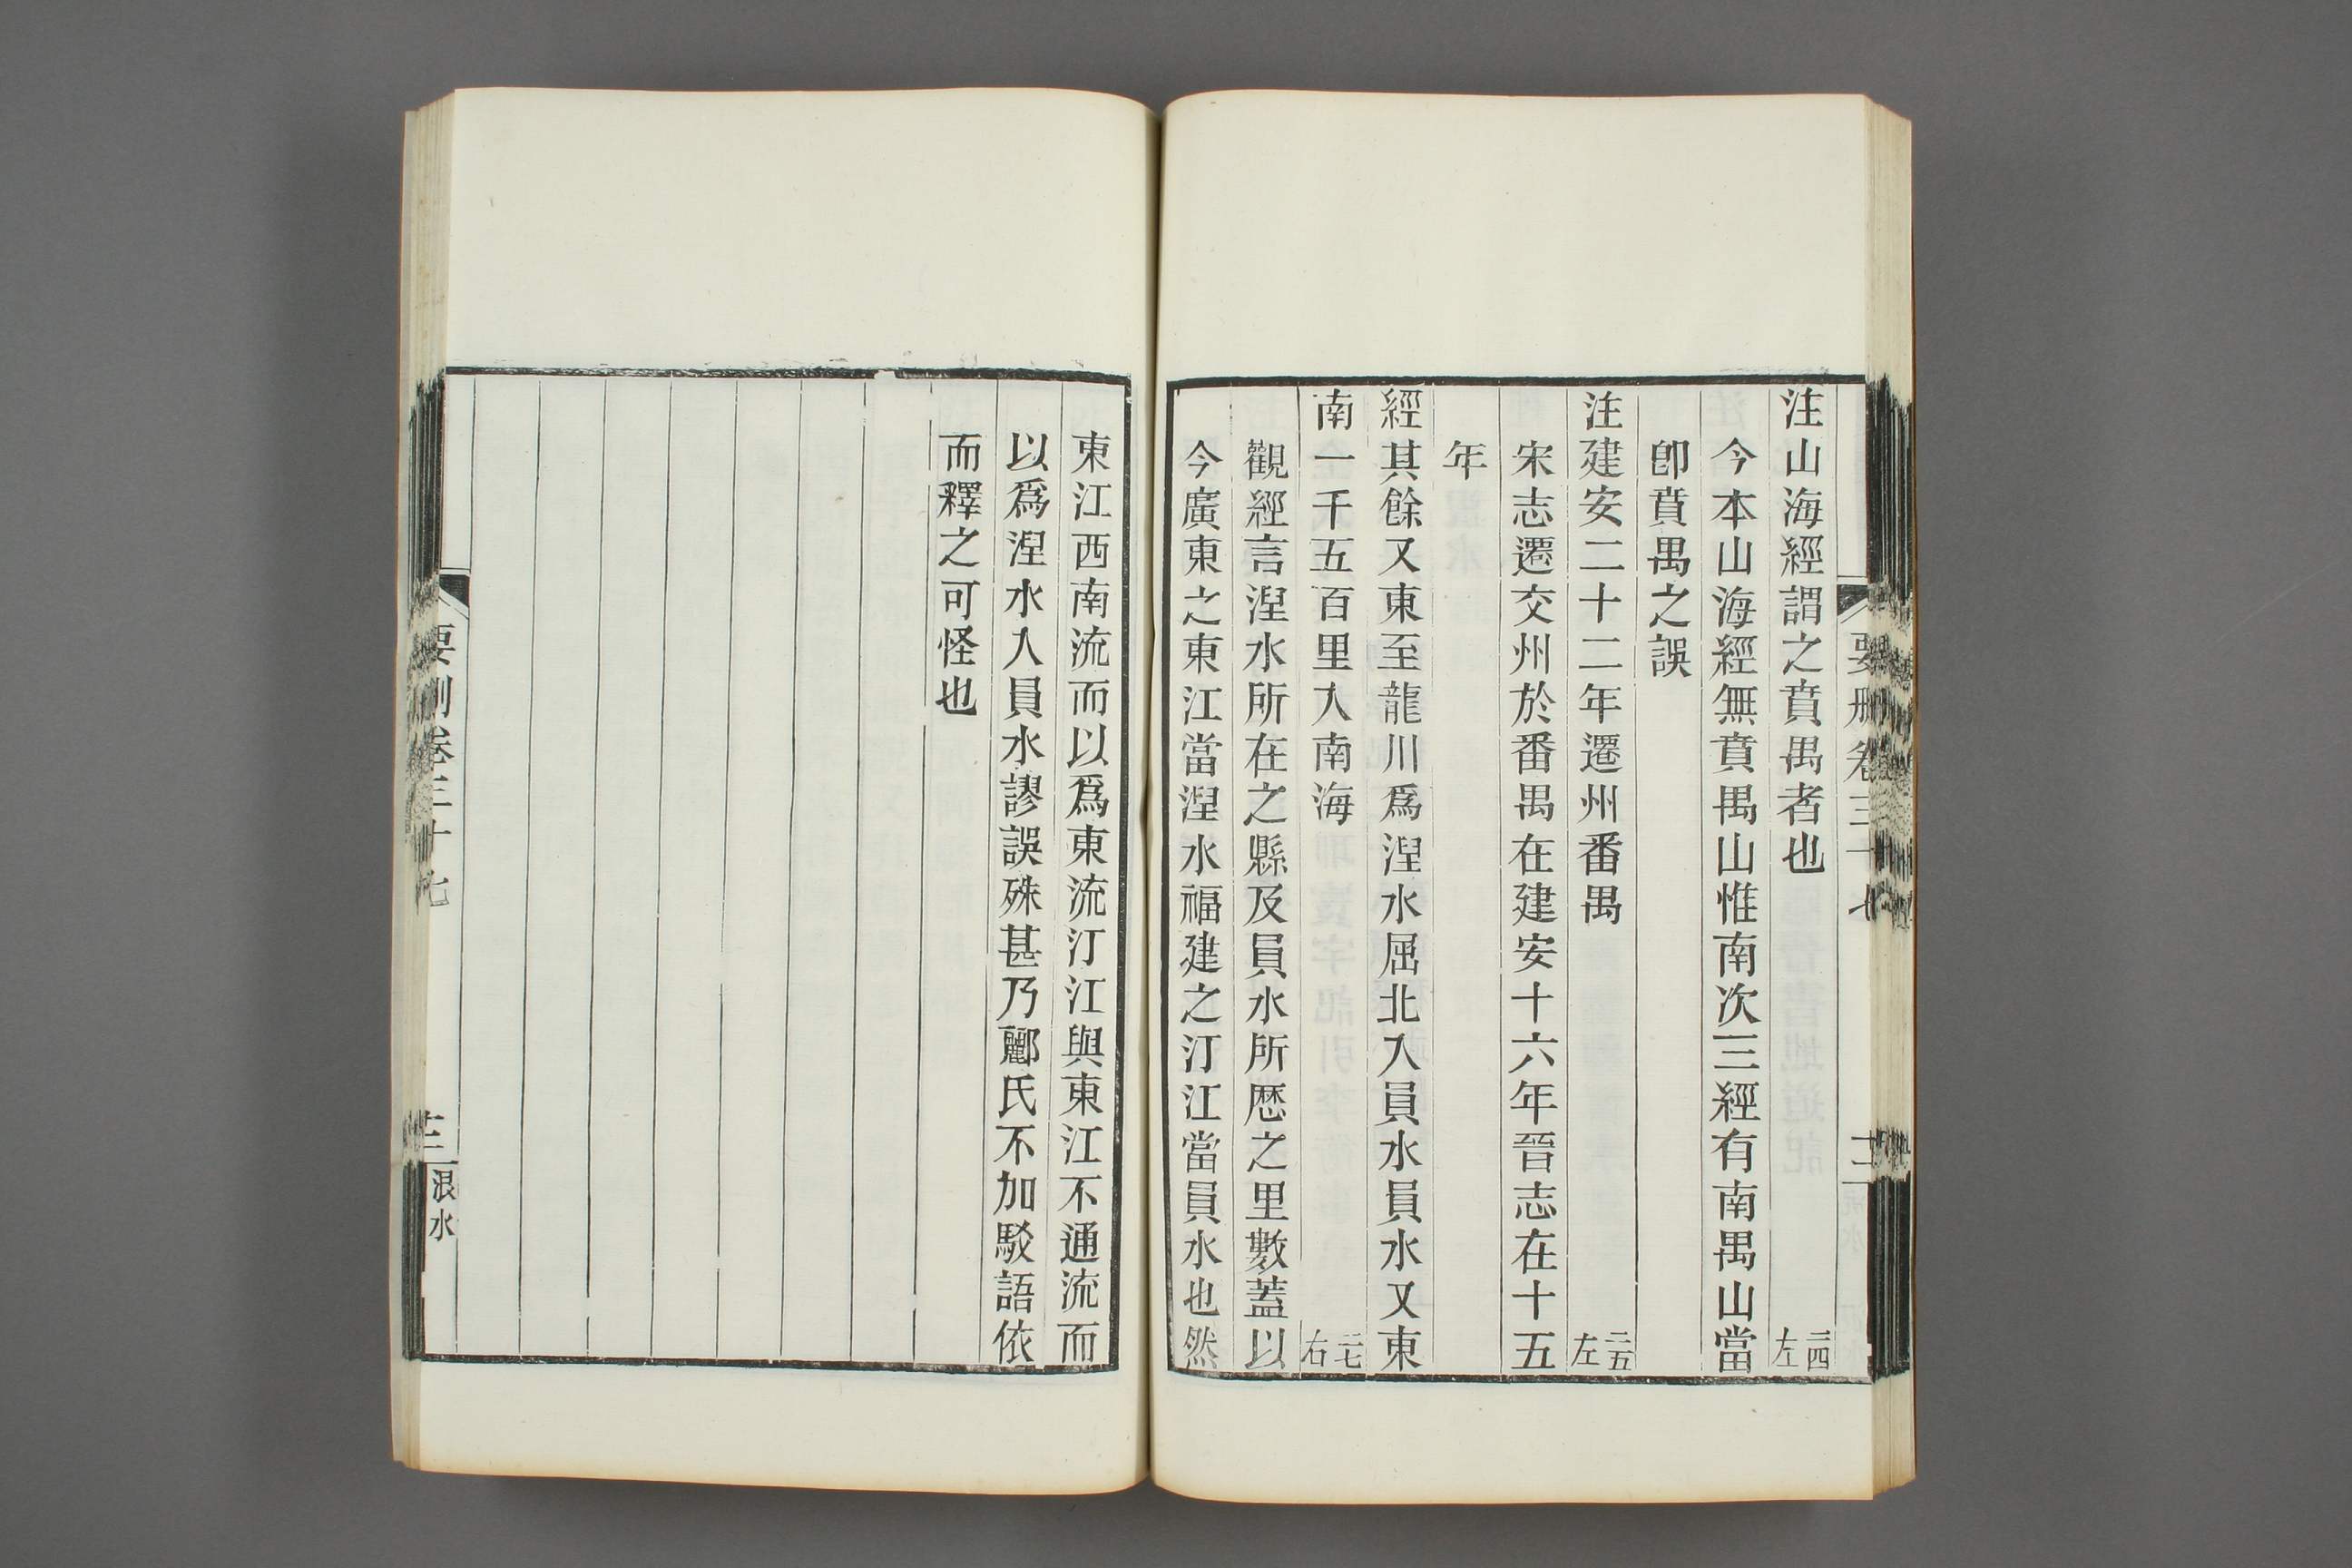 注山海經謂之賁禺者也 二四左
今本山海經無賁禺山惟南次三經有南禺山當
卽賁禺之誤
注建安二十二年遷州番禺 二五左
宋志遷交州於番禺在建安十六年晉志在十五
年
經其餘又東至龍川爲湼水屈北入員水員水又東
南一千五百里入南海 二七右
觀經言湼水所在之縣及員水所歷之里數蓋以
今廣東之東江當湼水福建之汀江當員水也然
東江西南流而以爲東流汀江與東江不通流而
以爲湼水入員水謬誤殊甚乃酈氏不加駁語依
而釋之可怪也
要刪卷三十七
浪水